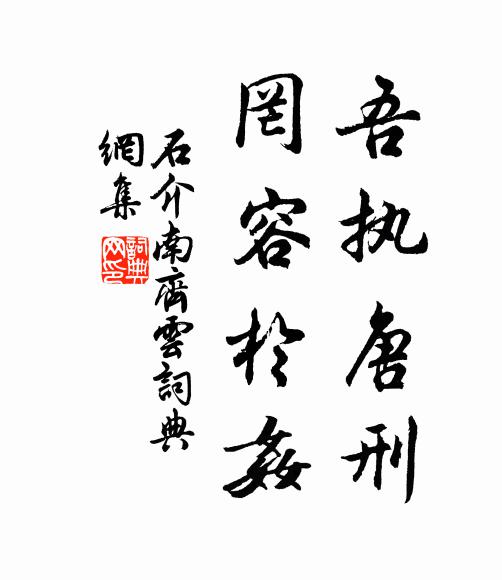 吾执唐刑
罔容於姦
石介南齊雲詞典
網集
詞典
网印